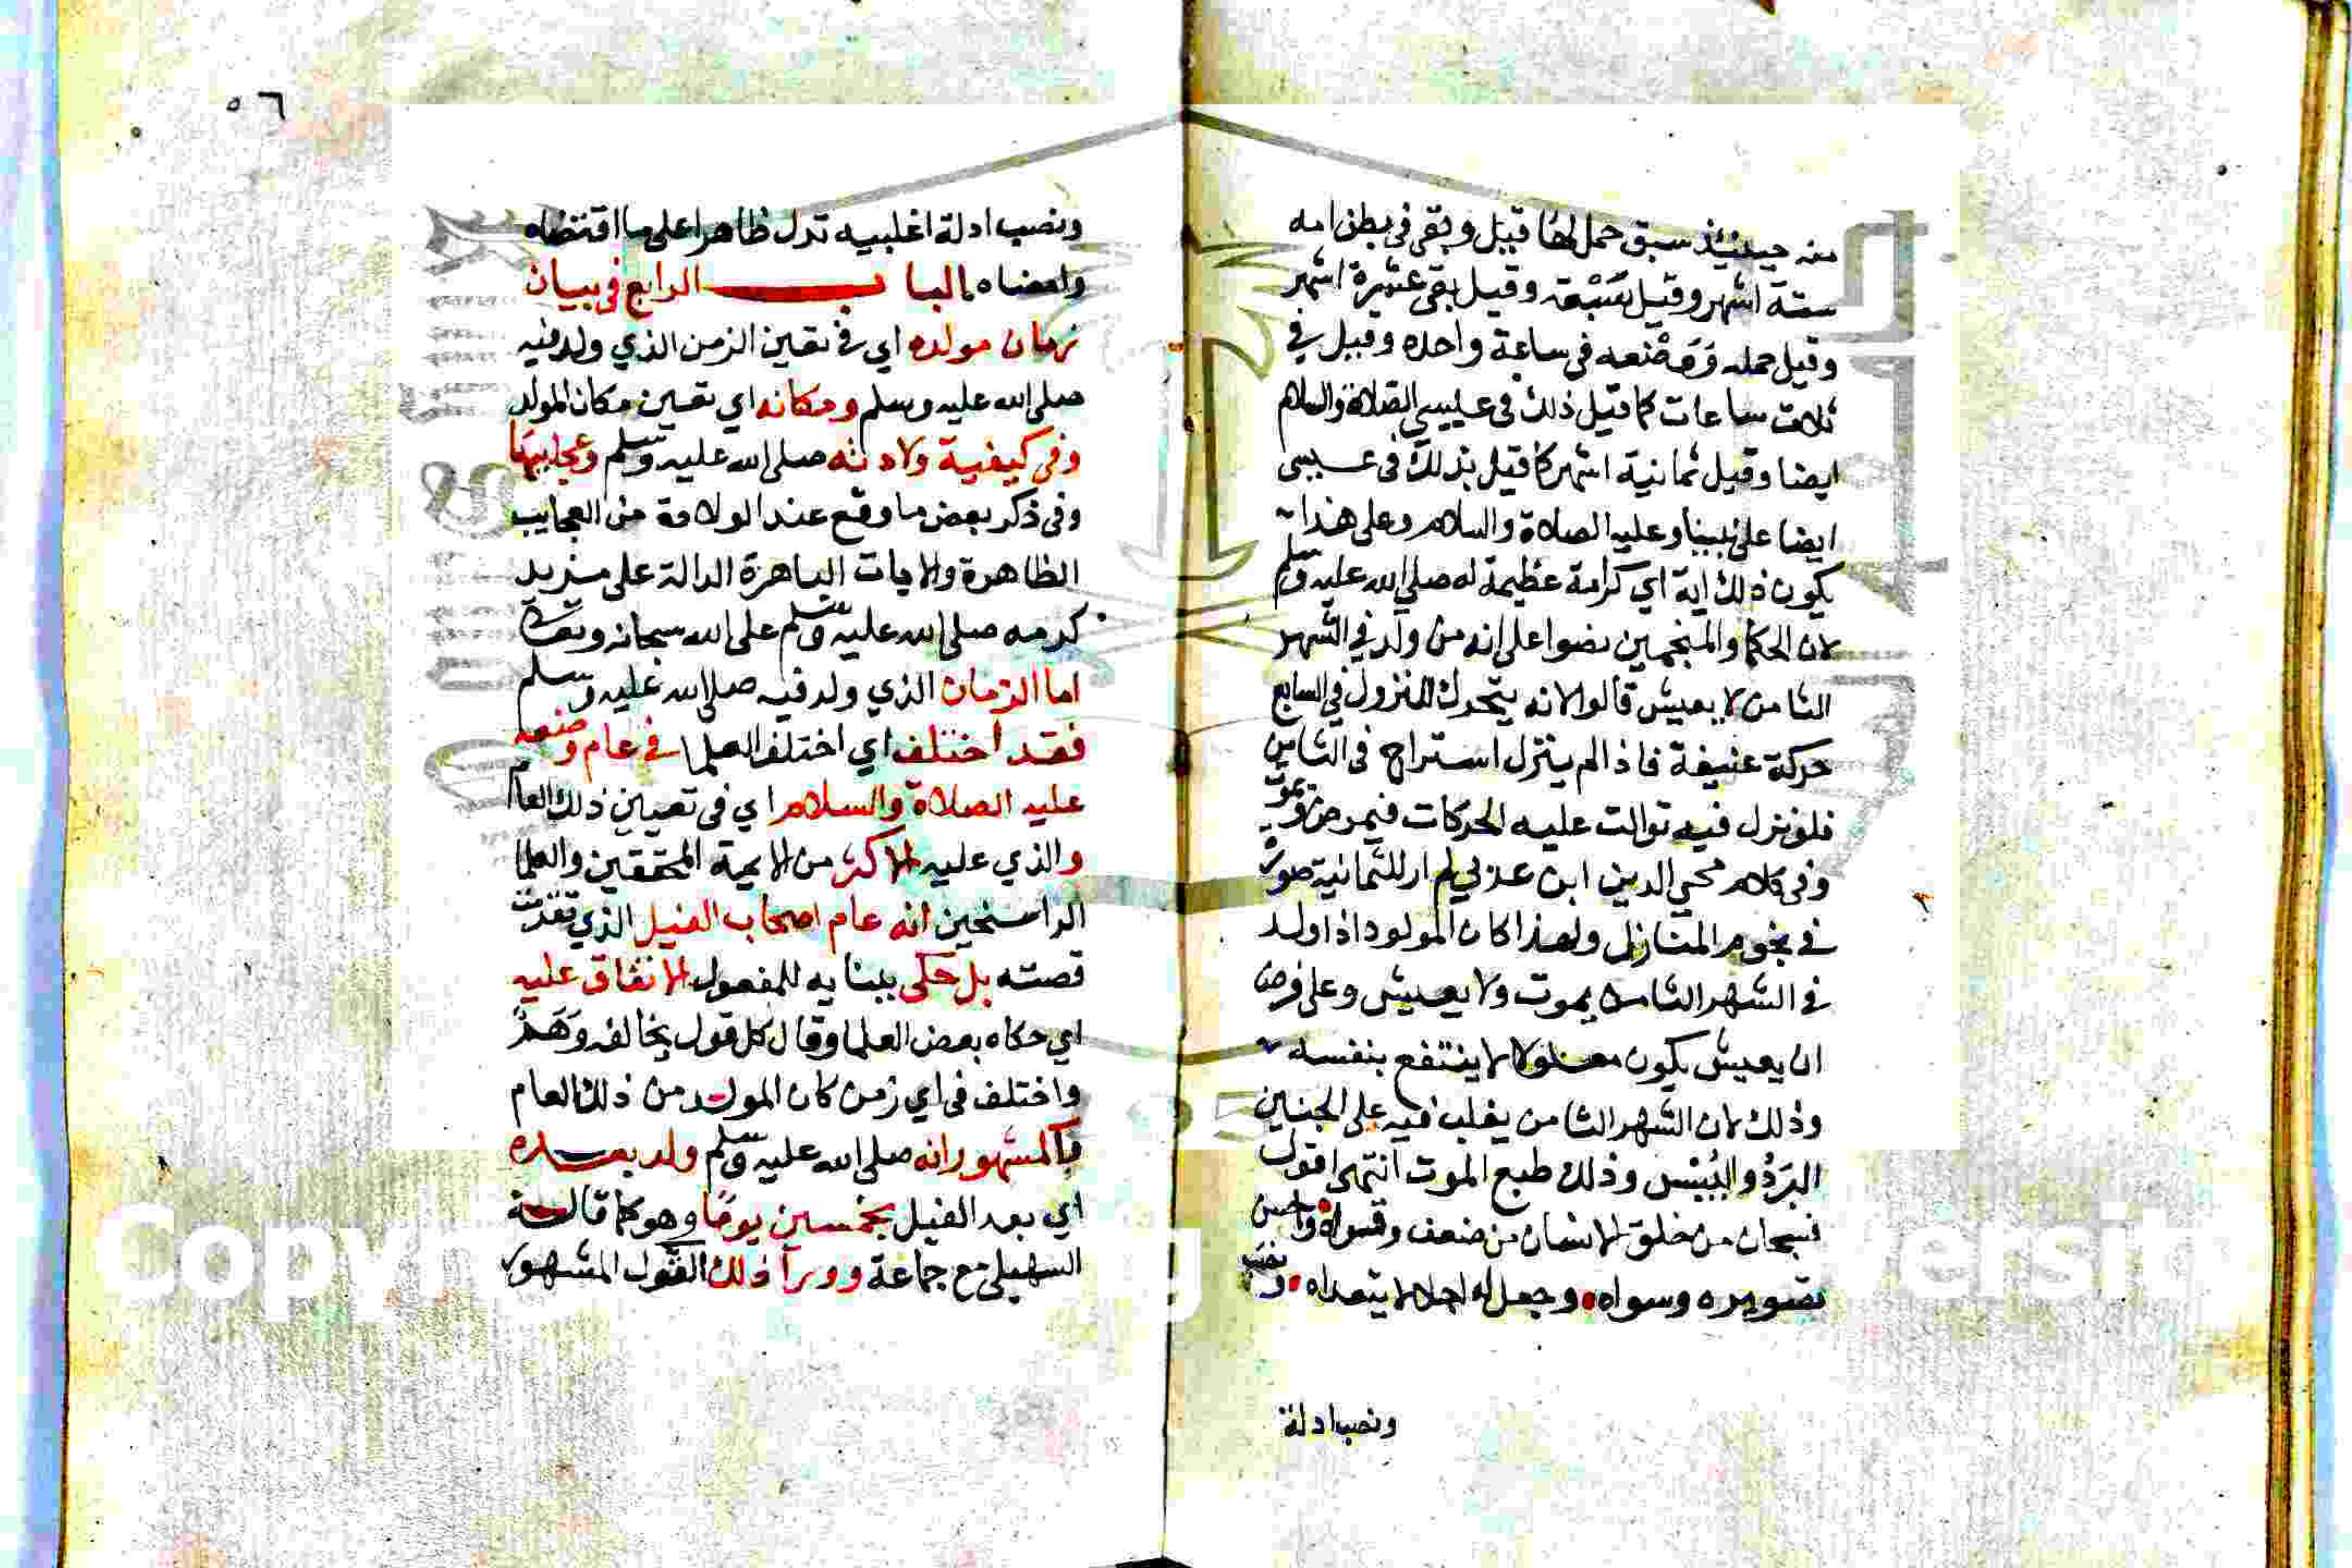 منه حينئذ سبق حمل لها قبيل وبقى فى بطن امه
ستة اشهر وقيل تسعة وقيل بقى عشرة اشهر
وقيل حمله ووضعه فى ساعة واحده وقيل في
ثلاث ساعات كما قيل ذلك فى عيسى الصلاة والسلام
ايضا وقيل ثمانية اشهر كما قيل بذلك فى عيسى
ايضا على نبينا وعليه الصلاة والسلام وعلى هذا
يكون ذلك اية اي كرامة عظيمة له صلى الله عليه وسلم
لان الحكما والمنجمين نصوا على انه من ولد في الشهر
الثامن لا يعيش قالوا لانه يتحرك للنزول في السابع
حركة عنيفة فاذا لم ينزل استراح فى الثامن
فلو نزل فيه توالت عليه الحركات فيمرض ويموت
وفى كلام محي الدين ابن عربي لم ار للثمانية صورة
في نجوم المنازل ولهذا كان المولود اذا ولد
في الشهر الثامن يموت ولا يعيش وعلى فرض
ان يعيش يكون معلولا لا ينتفع بنفسه
وذلك لان الشهر الثامن يغلب فيه على الجنين
البرد واليبس وذلك طبع الموت انتهى اقول
فسبحان من خلق الانسان من ضعف وقواه واحسن
تصويره وسواه وجعل له اجلا لا يتعداه ونصب
ونصب ادلة
٥٦
ونصب ادلة اغلبيه تدل ظاهرا على ما اقتضاه
وامضاه الباب الرابع فى بيان
زمان مولده اي في تعين الزمن الذي ولد فيه
صلى الله عليه وسلم ومكانه اي تعين مكان المولد
وفى كيفية ولادته صلى الله عليه وسلم وعجايبها
وفى ذكر بعض ما وقع عند الولادة من العجايب
الظاهرة والايات الباهرة الدالة على مزيد
كرمه صلى الله عليه وسلم على الله سبحانه وتعالى
اما الزمان الذي ولد فيه صلى الله عليه وسلم
فقد اختلف اي اختلف العلما في عام وضعه
عليه الصلاة والسلام اي فى تعيين ذلك العام
والذي عليه الاكثر من الايمة المحققين والعلما
الراسخين انه عام اصحاب الفيل الذي تقدمت
قصته بل حكى ببنايه للمفعول الاتفاق عليه
اي حكاه بعض العلما وقال كل قول يخالفه وهم
واختلف فى اي زمن كان المولد من ذلك العام
فالمشهور انه صلى الله عليه وسلم ولد بعده
اي بعد الفيل بخمسين يوما وهو كما قاله
السهيلى مع جماعة وورآ ذلك القول المشهور